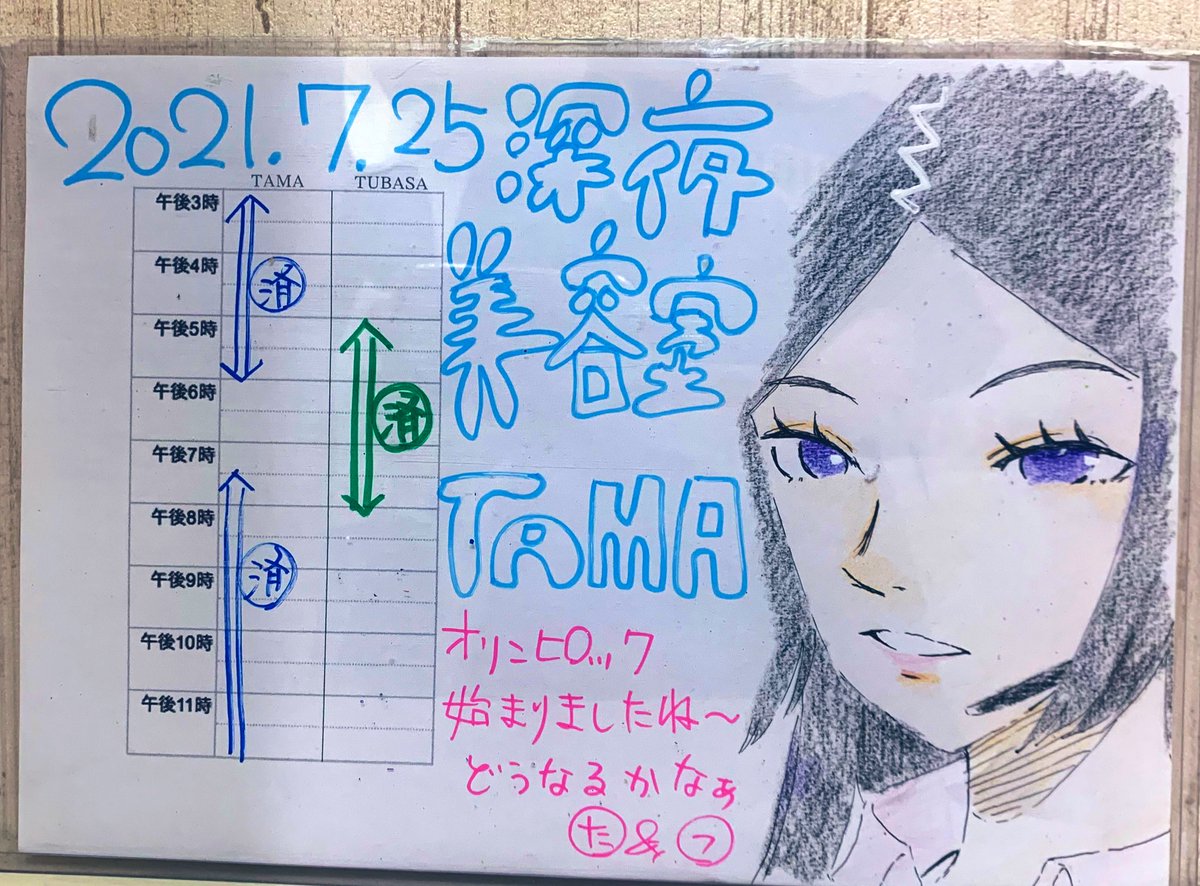 2021.7.25 深夜
美容室
TAMA
TAMA TUBASA
午後3時
午後4時
済
午後5時
午後6時
済
午後7時
午後8時
午後9時
済
午後10時
午後11時
オリンピロック
始まりましたね〜
どうなるかなぁ
た&つ